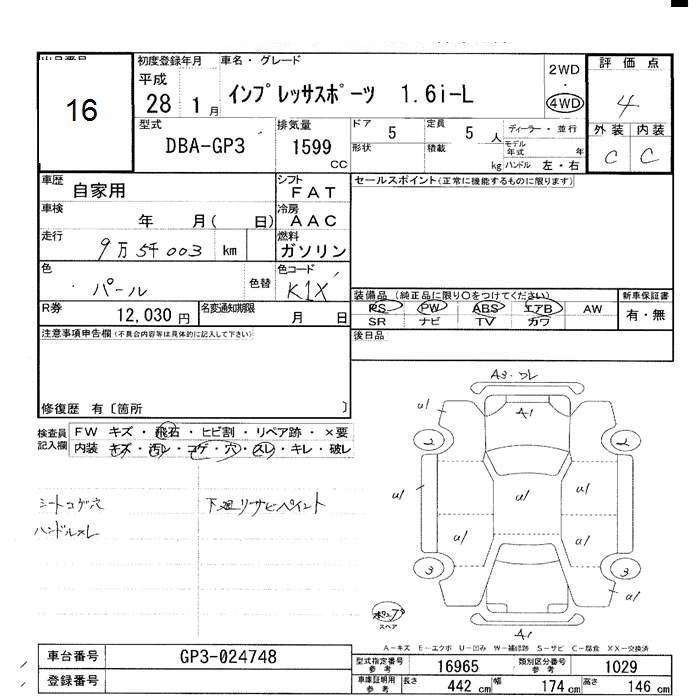 出品番号
16
初度登録年月
平成
28 1月
車名・グレード
インプレッサスポーツ 1.6i-L
2WD
・
4WD
評価点
4
外装 内装
C C
型式
DBA-GP3
排気量
1599
CC
ドア 5
形状
定員 5 人
積載 kg
ディーラー・並行
モデル年式 年
ハンドル 左・右
車歴
自家用
シフト
FAT
車検
年 月( 日)
冷房
AAC
走行
9万5千003 km
燃料
ガソリン
色
パール
色替
色コード
K1X
R券
12,030 円
名変通知期限
月 日
セールスポイント(正常に機能するものに限ります)
装備品 (純正品に限り○をつけてください)
PS PW ABS エアB AW
SR ナビ TV カワ
新車保証書
有・無
後日品
注意事項申告欄(不具合内容等は具体的に記入して下さい)
修復歴 有〔箇所 〕
検査員記入欄
FW キズ・飛石・ヒビ割・リペア跡・×要
内装 キズ・汚レ・コゲ・穴・スレ・キレ・破レ
シートコゲ穴
ハンドルスレ
下廻リサビペイント
A3.フレ
A1
U1
2
2
U1
U1
U1
U1
U1
3
3
U1
スペア
A1
A-キズ E-エクボ U-凹み W-補修跡 S-サビ C-腐食 XX-交換済
車台番号
GP3-024748
登録番号
型式指定番号
参考
16965
類別区分番号
参考
1029
車庫証明用
参考
長さ 442 cm 幅 174 cm 高さ 146 cm